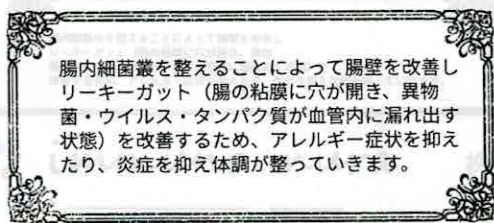 腸内細菌叢を整えることによって腸壁を改善し
リーキーガット（腸の粘膜に穴が開き、異物
菌・ウイルス・タンパク質が血管内に漏れ出す
状態）を改善するため、アレルギー症状を抑え
たり、炎症を抑え体調が整っていきます。